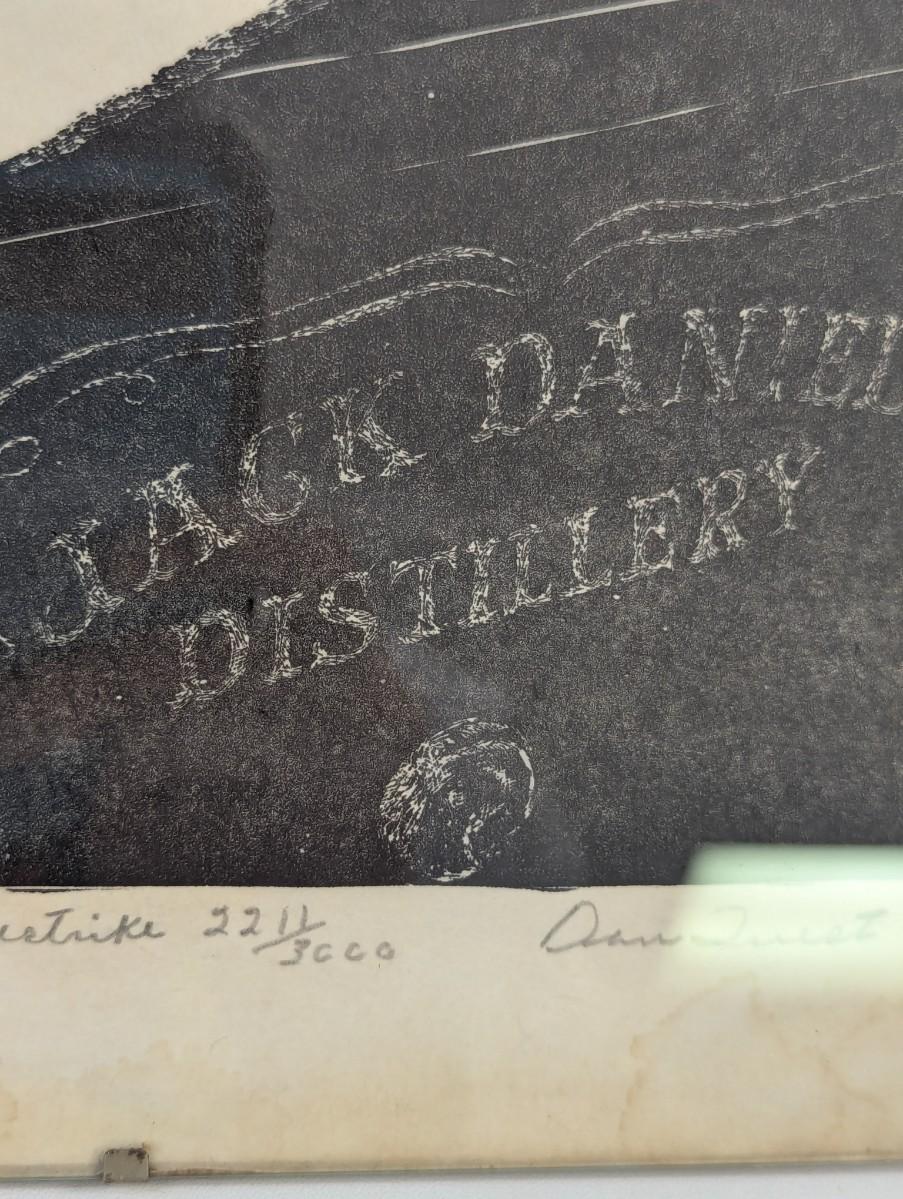 JACK DANIEL
DISTILLERY
estrike 2211/3000 Dan Quest